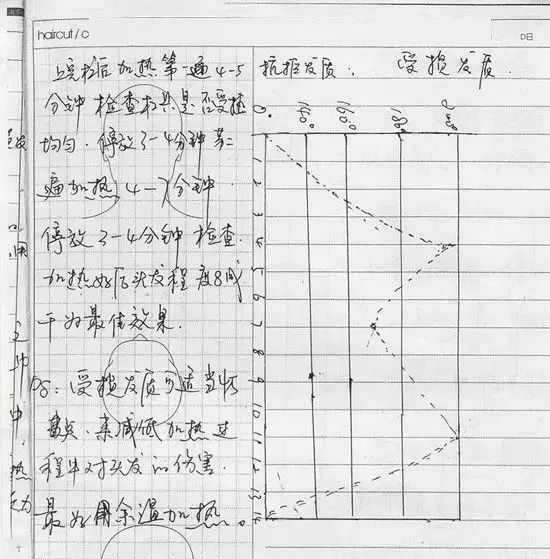 haircut/c
D日
上完杠后加热第一遍4-5
分钟 检查杠具是否受热
均匀. 停放3-4分钟 第二
遍加热 4-7分钟
停放3-4分钟 检查.
加热好后头发程度8成
干为最佳效果.
PS: 受损发质可适当
来减低加热过
程中对头发的伤害.
最好用余温加热。
抗拒发质. 受损发质.
0 140° 160° 180° 200°
1
2
3
4
5
6
7
8
9
10
11
12
13
14